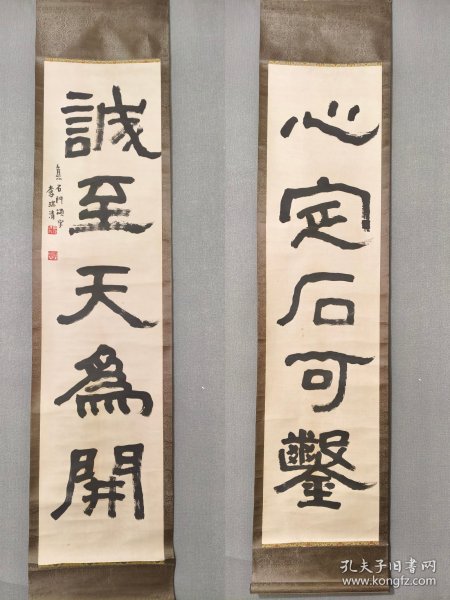 心定石可鑿
誠至天為開
集石門頌字
李瑞清
孔夫子旧书网
www.kongfz.com